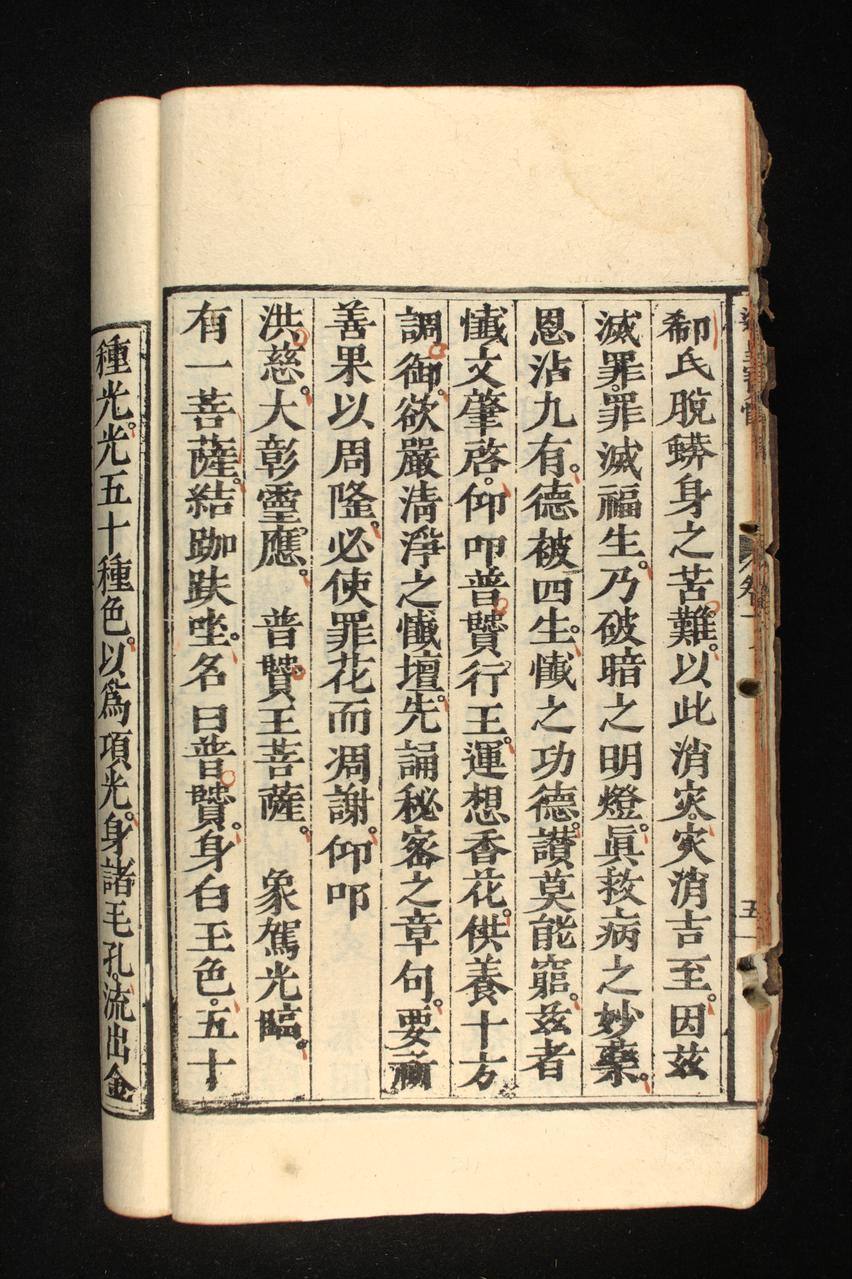 郗氏脫蟒身之苦難。以此消灾。灾消吉至。因茲
滅罪。罪滅福生。乃破暗之明燈。眞救病之妙藥。
恩沾九有。德被四生。懺之功德。讃莫能窮。茲者
懺文肇啓。仰叩普賢行王。運想香花。供養十方
調御。欲嚴淸淨之懺壇。先誦秘密之章句。要祈
善果以周隆。必使罪花而凋謝。仰叩
洪慈。大彰靈應。　普賢王菩薩。　象駕光臨。
有一菩薩。結跏趺坐。名曰普賢。身白玉色。五十
種光。光五十種色。以爲項光。身諸毛孔。流出金